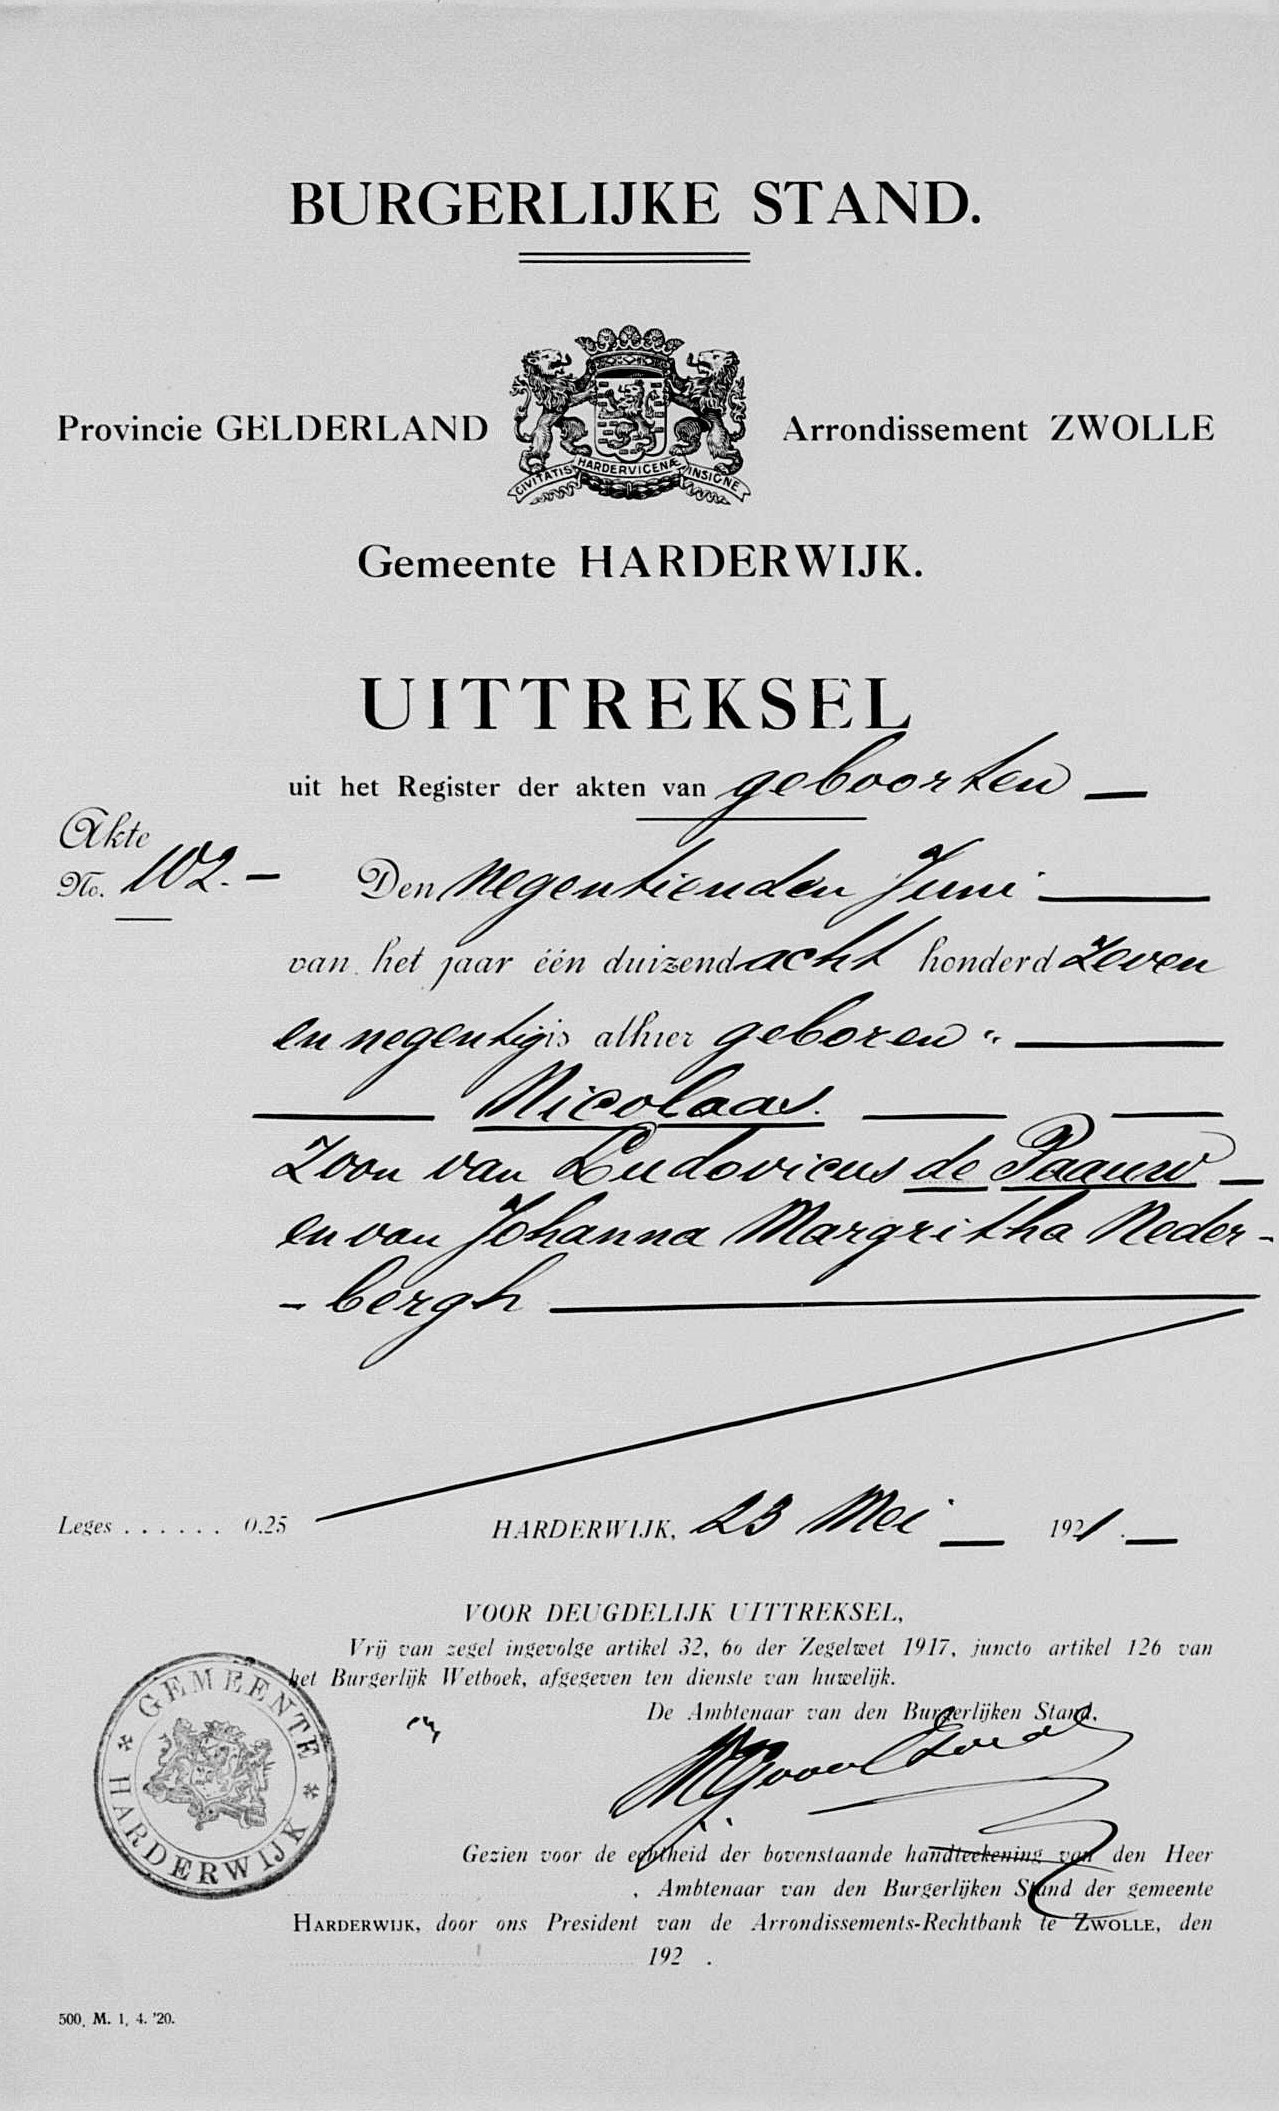 BURGERLIJKE STAND.
Provincie GELDERLAND
CIVITATIS HARDERVICENÆ INSIGNE
Arrondissement ZWOLLE
Gemeente HARDERWIJK.
UITTREKSEL
uit het Register der akten van geboorten —
Akte
No. 102. —
Den negentienden Juni —
van het jaar één duizend acht honderd zeven
en negentig is alhier geboren: —
— Nicolaas. — —
Zoon van Ludovicus de Paauw —
en van Johanna Margritha Neder-
- bergh —
Leges . . . . . . 0.25
HARDERWIJK, 23 Mei — 1921. —
VOOR DEUGDELIJK UITTREKSEL,
Vrij van zegel ingevolge artikel 32, 6o der Zegelwet 1917, juncto artikel 126 van
het Burgerlijk Wetboek, afgegeven ten dienste van huwelijk.
De Ambtenaar van den Burgerlijken Stand,
GEMEENTE HARDERWIJK
Gezien voor de echtheid der bovenstaande handteekening van den Heer
, Ambtenaar van den Burgerlijken Stand der gemeente
HARDERWIJK, door ons President van de Arrondissements-Rechtbank te ZWOLLE, den
192 .
500, M. 1, 4. '20.